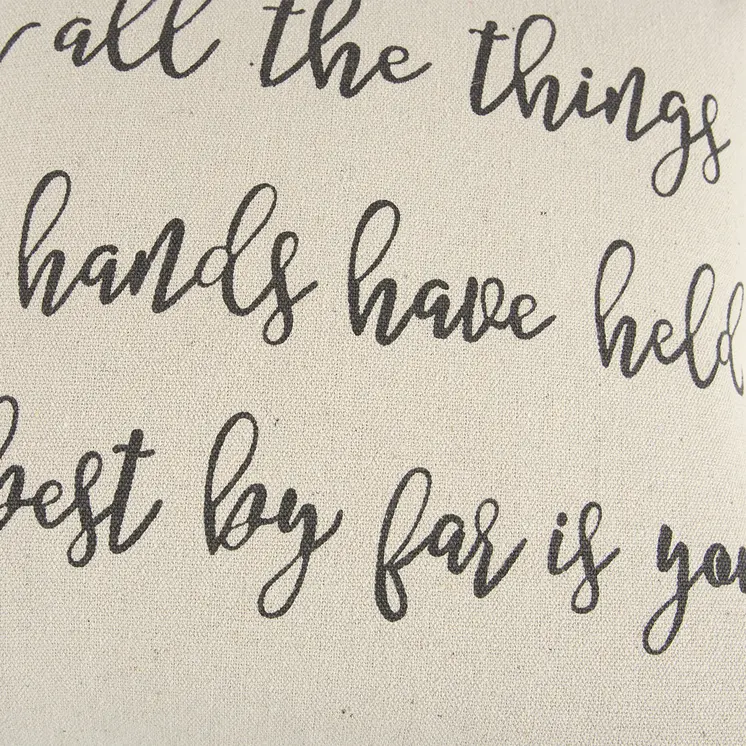 all the things
hands have held
best by far is you